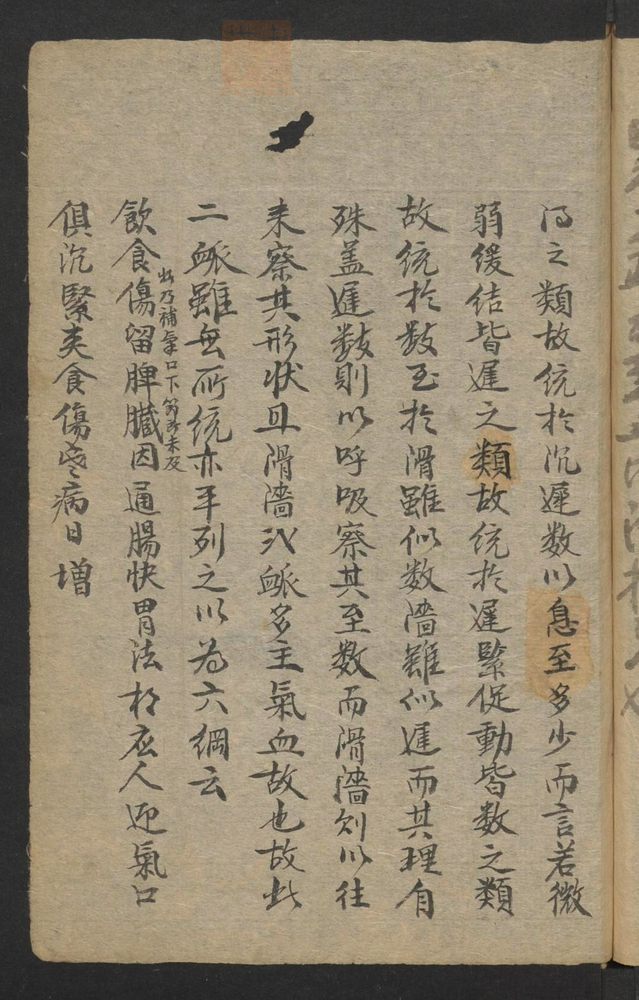 得之類故統於沉遲數以息至多少而言若微
弱緩結皆遲之類故统於遲緊促動皆數之類
故统於数至於滑雖似数濇雖似遲而其理自
殊盖遲数則以呼吸察其至数而滑濇則以往
来察其形状且滑濇二脈多主氣血故也故此
二脈雖無所统亦平列之以為六綱云
此乃補氣口下節所未及
飲食傷留脾臓因通腸快胃法相应人迎氣口
俱沉緊夹食傷寒病日增